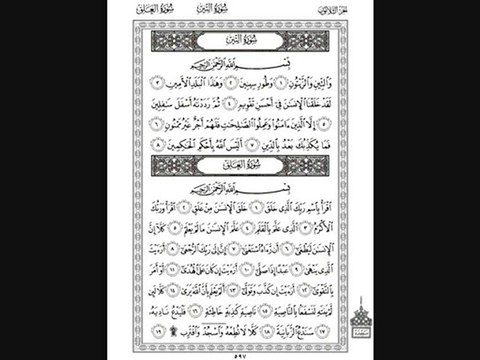 الجزء الثلاثون سورة التين سورة العلق
سورة التين
بسم الله الرحمن الرحيم
والتين والزيتون ١ وطور سينين ٢ وهذا البلد الأمين ٣
لقد خلقنا الإنسن في أحسن تقويم ٤ ثم رددنه أسفل سفلين
٥ إلا الذين ءامنوا وعملوا الصلحت فلهم أجر غير ممنون ٦
فما يكذبك بعد بالدين ٧ أليس الله بأحكم الحكمين ٨
سورة العلق
بسم الله الرحمن الرحيم
اقرأ باسم ربك الذي خلق ١ خلق الإنسن من علق ٢ اقرأ وربك
الأكرم ٣ الذي علم بالقلم ٤ علم الإنسن ما لم يعلم ٥ كلا إن
الإنسن ليطغى ٦ أن رءاه استغنى ٧ إن إلى ربك الرجعى ٨ أرءيت
الذي ينهى ٩ عبدا إذا صلى ١٠ أرءيت إن كان على الهدى ١١ أو أمر
بالتقوى ١٢ أرءيت إن كذب وتولى ١٣ ألم يعلم بأن الله يرى ١٤ كلا لئن
لم ينته لنسفعا بالناصية ١٥ ناصية كذبة خاطئة ١٦ فليدع ناديه
١٧ سندع الزبانية ١٨ كلا لا تطعه واسجد واقترب ۩ ١٩
٥٩٧